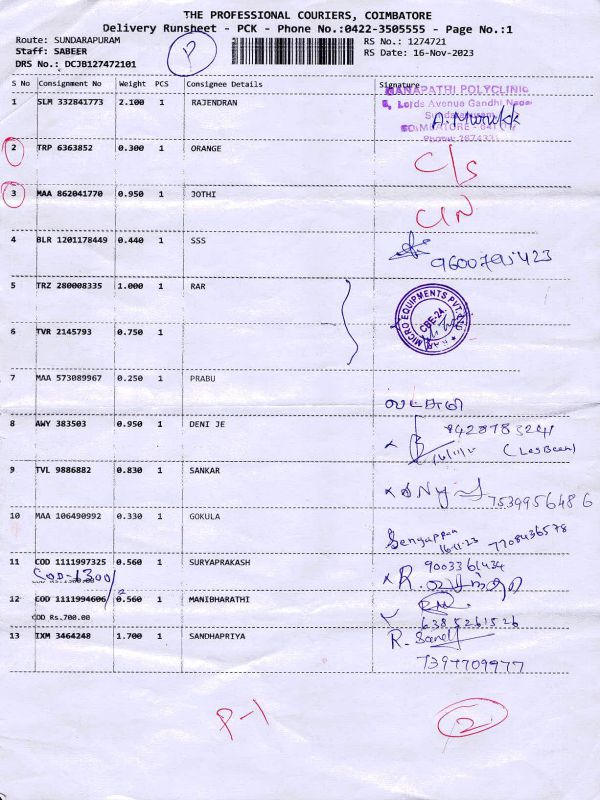 THE PROFESSIONAL COURIERS, COIMBATORE
Delivery Runsheet - PCK - Phone No.:0422-3505555 - Page No.:1
Route: SUNDARAPURAM
RS No.: 1274721
Staff: SABEER
RS Date: 16-Nov-2023
DRS No.: DCJB127472101
P
S No Consignment No Weight PCS Consignee Details Signature
1 SLM 332841773 2.100 1 RAJENDRAN
GANAPATHI POLYCLINIC
Lords Avenue Gandhi Nagar
COIMBATORE
2 TRP 6363852 0.300 1 ORANGE C/S
3 MAA 862041770 0.950 1 JOTHI C/N
4 BLR 1201178449 0.440 1 SSS 9600795423
5 TRZ 280008335 1.000 1 RAR
MICRO EQUIPMENTS PVT. LTD
CBE-24
6 TVR 2145793 0.750 1
7 MAA 573089967 0.250 1 PRABU
8 AWY 383503 0.950 1 DENI JE
9 TVL 9886882 0.830 1 SANKAR 7539956486
10 MAA 106490992 0.330 1 GOKULA Sengappan
16-11-23 7708436578
11 COD 1111997325 0.560 1 SURYAPRAKASH 9003361434
COD-1300/
12 COD 1111994606 0.560 1 MANIBHARATHI
COD Rs.700.00 6385261526
13 IXM 3464248 1.700 1 SANDHAPRIYA R. Sandy
7397709977
P-1 2